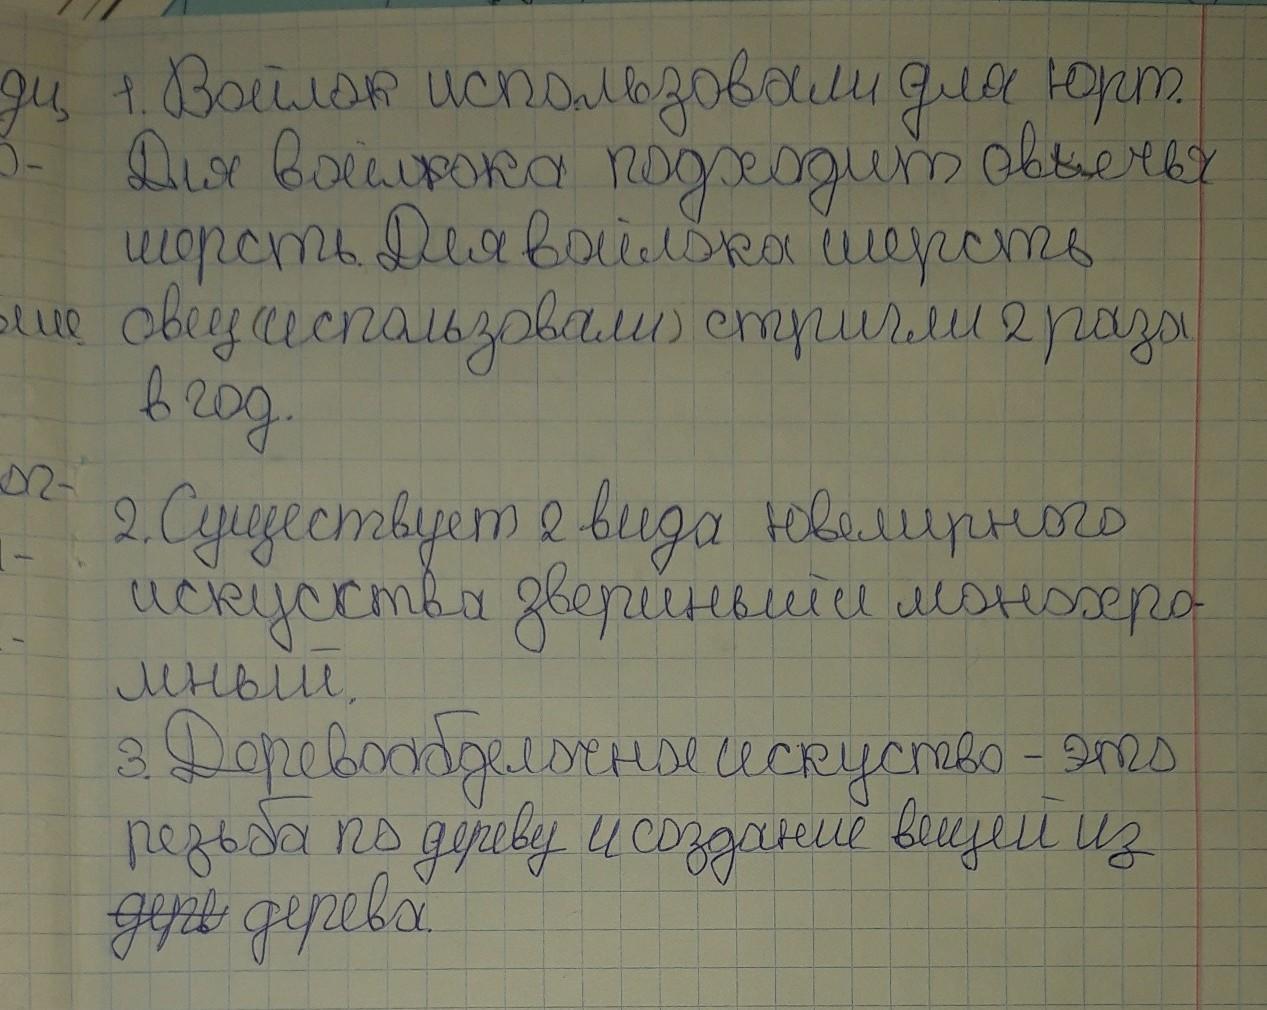 1. Войлок использовали для юрт.
Для войлока подходит овечья
шерсть. Для войлока шерсть
овец (использовали) стригли 2 раза
в год.
2. Существует 2 вида ювелирного
искусства звериный и монохро-
мный.
3. Деревообделочное искуство - это
резьба по дереву и создание вещей из
дерев дерева.